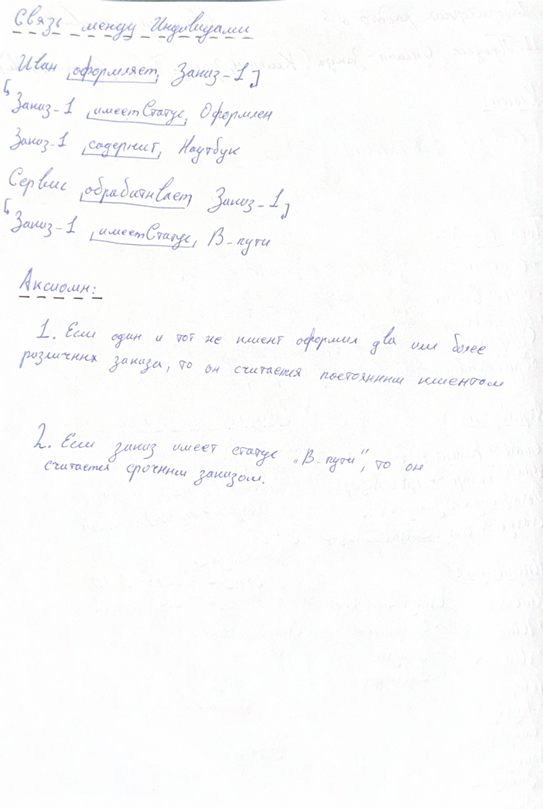 Связь между Индивидами
Иван оформляет Заказ-1
Заказ-1 имеетСтатус Оформлен
Заказ-1 содержит Ноутбук
Сервис обрабатывает Заказ-1
Заказ-1 имеетСтатус В-пути
Аксиомы:
1. Если один и тот же клиент оформил два или более
различных заказа, то он считается постоянным клиентом
2. Если заказ имеет статус „В-пути", то он
считается срочным заказом.